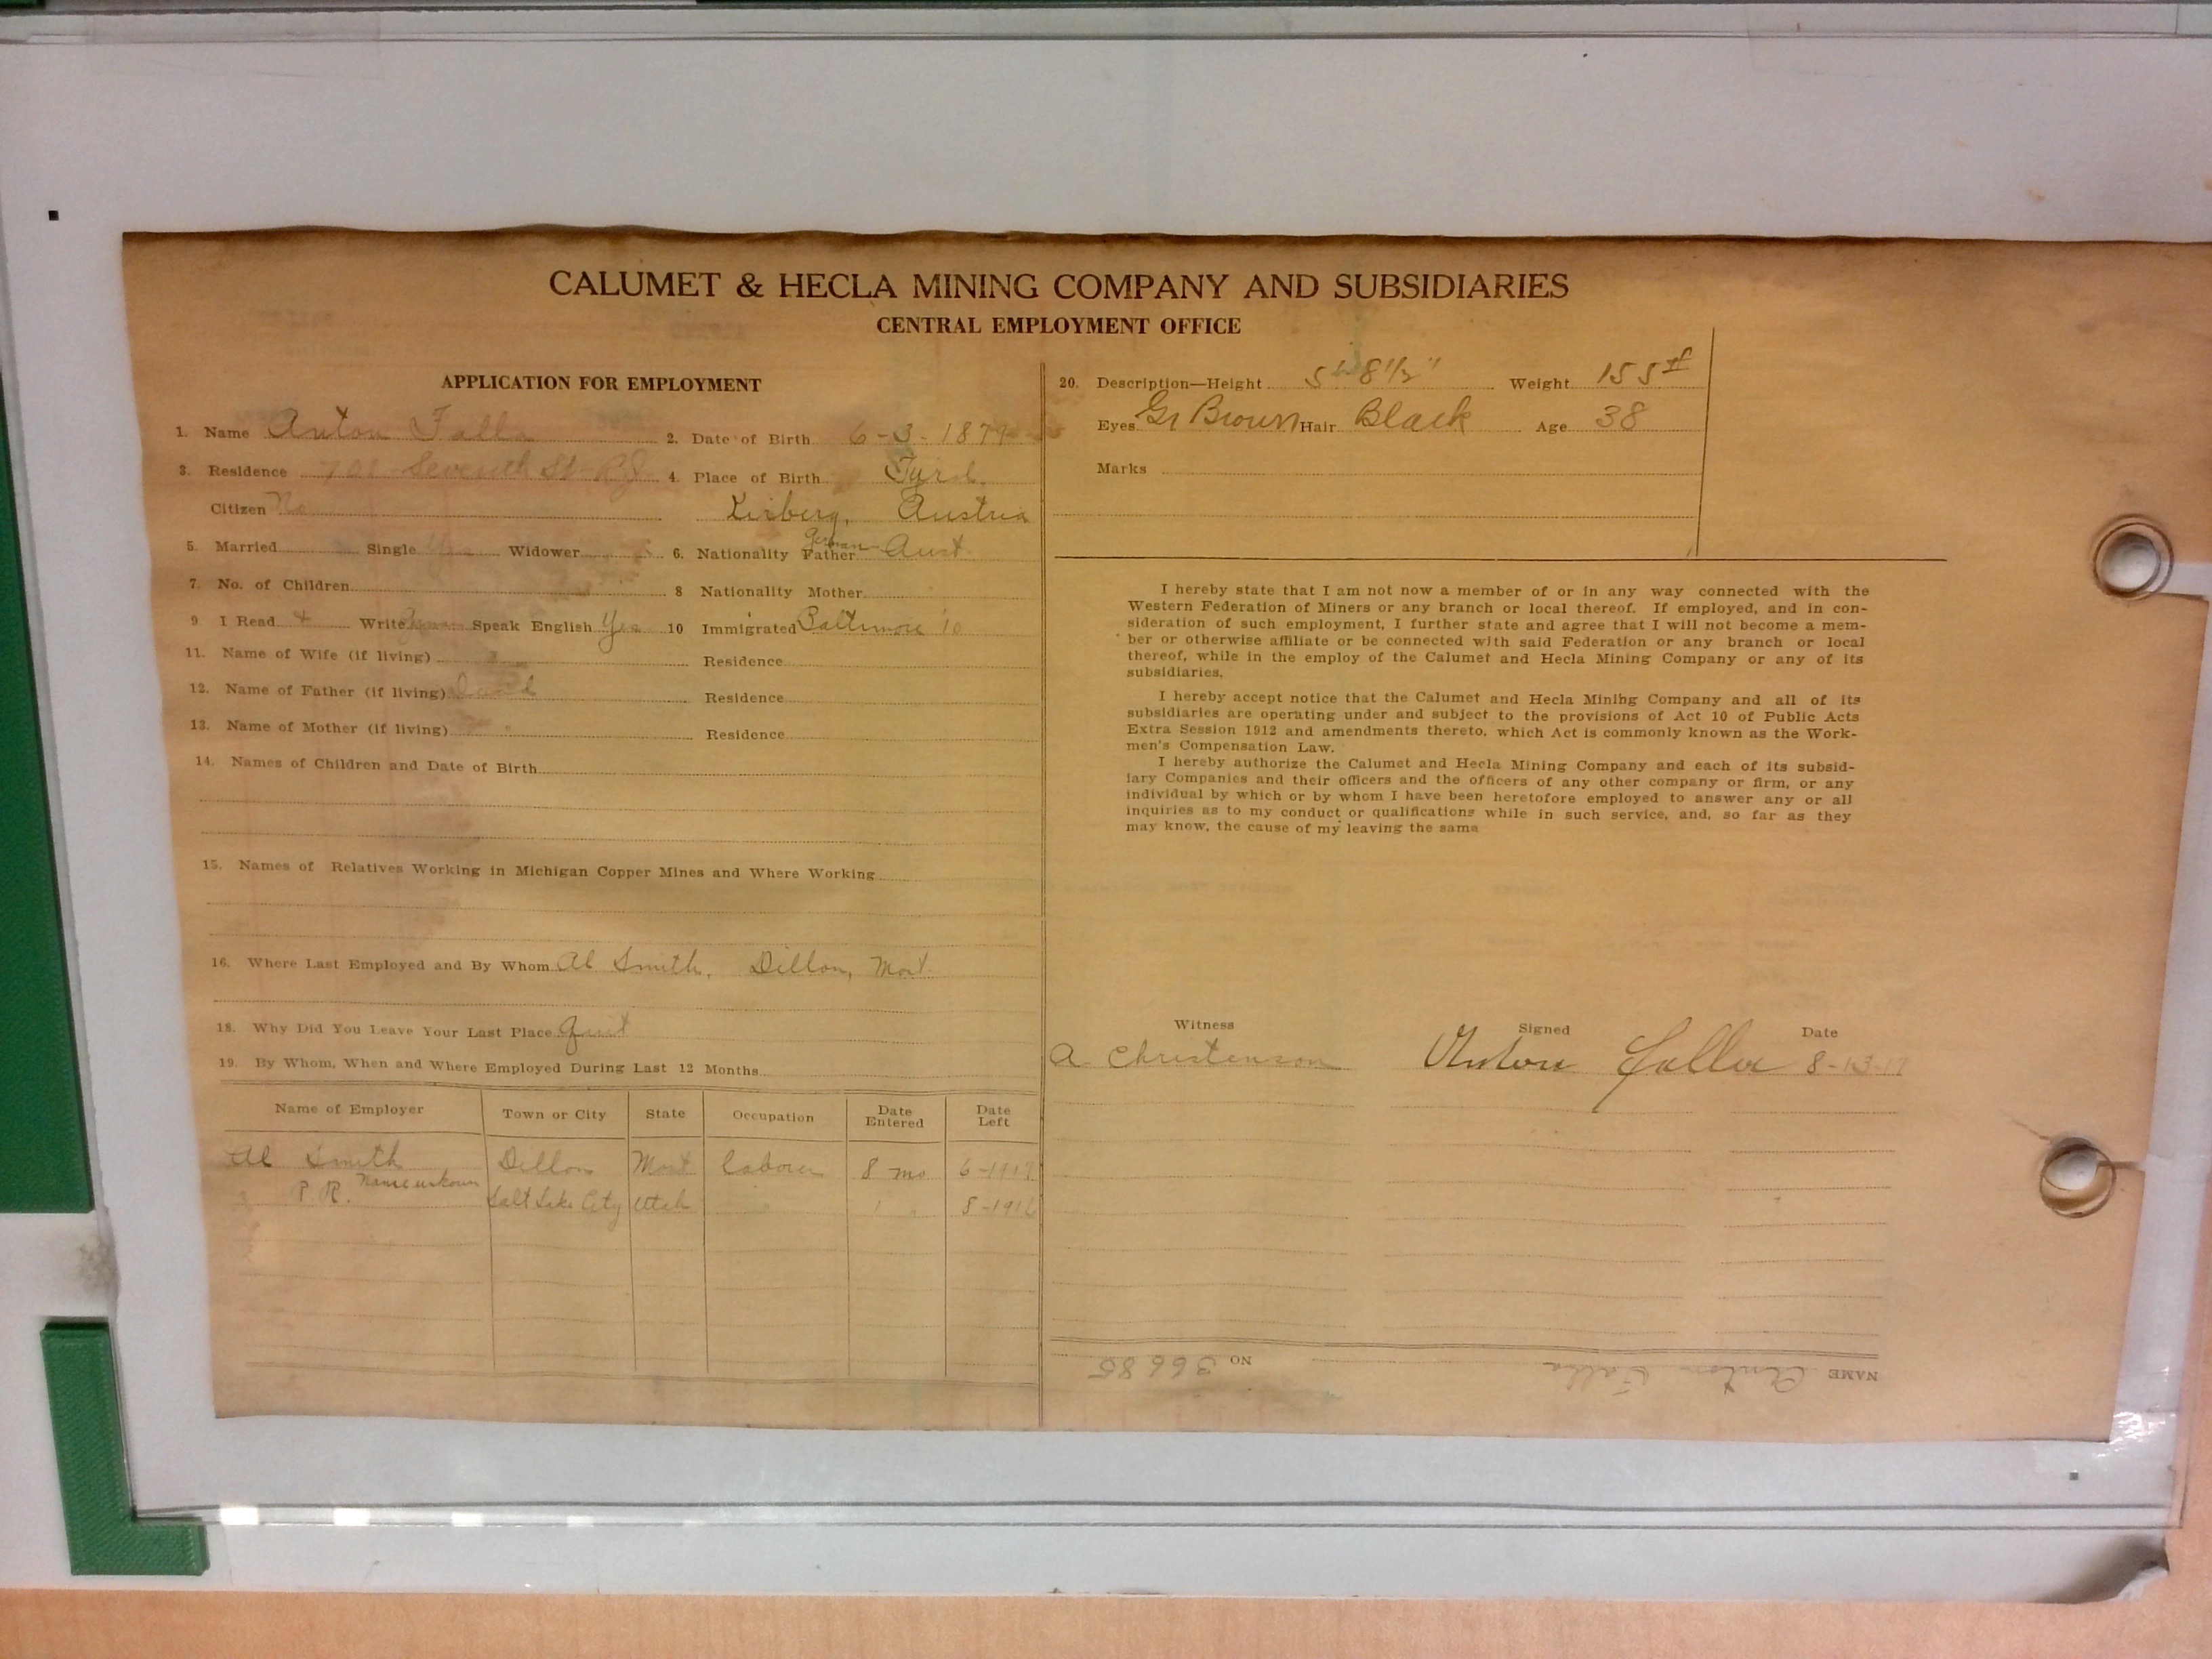 CALUMET & HECLA MINING COMPANY AND SUBSIDIARIES
CENTRAL EMPLOYMENT OFFICE
APPLICATION FOR EMPLOYMENT
1. Name Anton Falla 2. Date of Birth 6-3-1879
3. Residence Seventh St 4. Place of Birth Tyrol.
Citizen No Kirberg, Austria
5. Married Single Yes Widower 6. Nationality Father German Aust.
7. No. of Children 8 Nationality Mother
9 I Read + Write German Speak English Yes 10 Immigrated Baltimore 10
11. Name of Wife (if living) Residence
12. Name of Father (if living) Dead Residence
13. Name of Mother (if living) " Residence
14. Names of Children and Date of Birth
15. Names of Relatives Working in Michigan Copper Mines and Where Working
16. Where Last Employed and By Whom Al Smith, Dillon, Mont.
18. Why Did You Leave Your Last Place Quit
19. By Whom, When and Where Employed During Last 12 Months
Name of Employer Town or City State Occupation Date Entered Date Left
Al Smith Dillon Mont labourer 8 mo 6-1917
P. R. Name unkown Salt Lake City Utah " 1 " 8-1916
20. Description—Height 5 8½" Weight 155#
Eyes Gr Brown Hair Black Age 38
Marks
I hereby state that I am not now a member of or in any way connected with the
Western Federation of Miners or any branch or local thereof. If employed, and in con-
sideration of such employment, I further state and agree that I will not become a mem-
ber or otherwise affiliate or be connected with said Federation or any branch or local
thereof, while in the employ of the Calumet and Hecla Mining Company or any of its
subsidiaries.
I hereby accept notice that the Calumet and Hecla Mining Company and all of its
subsidiaries are operating under and subject to the provisions of Act 10 of Public Acts
Extra Session 1912 and amendments thereto, which Act is commonly known as the Work-
men's Compensation Law.
I hereby authorize the Calumet and Hecla Mining Company and each of its subsid-
iary Companies and their officers and the officers of any other company or firm, or any
individual by which or by whom I have been heretofore employed to answer any or all
inquiries as to my conduct or qualifications while in such service, and, so far as they
may know, the cause of my leaving the same
Witness Signed Date
A Christenson Anton Falla 8-13-17
NAME Anton Falla NO 36685